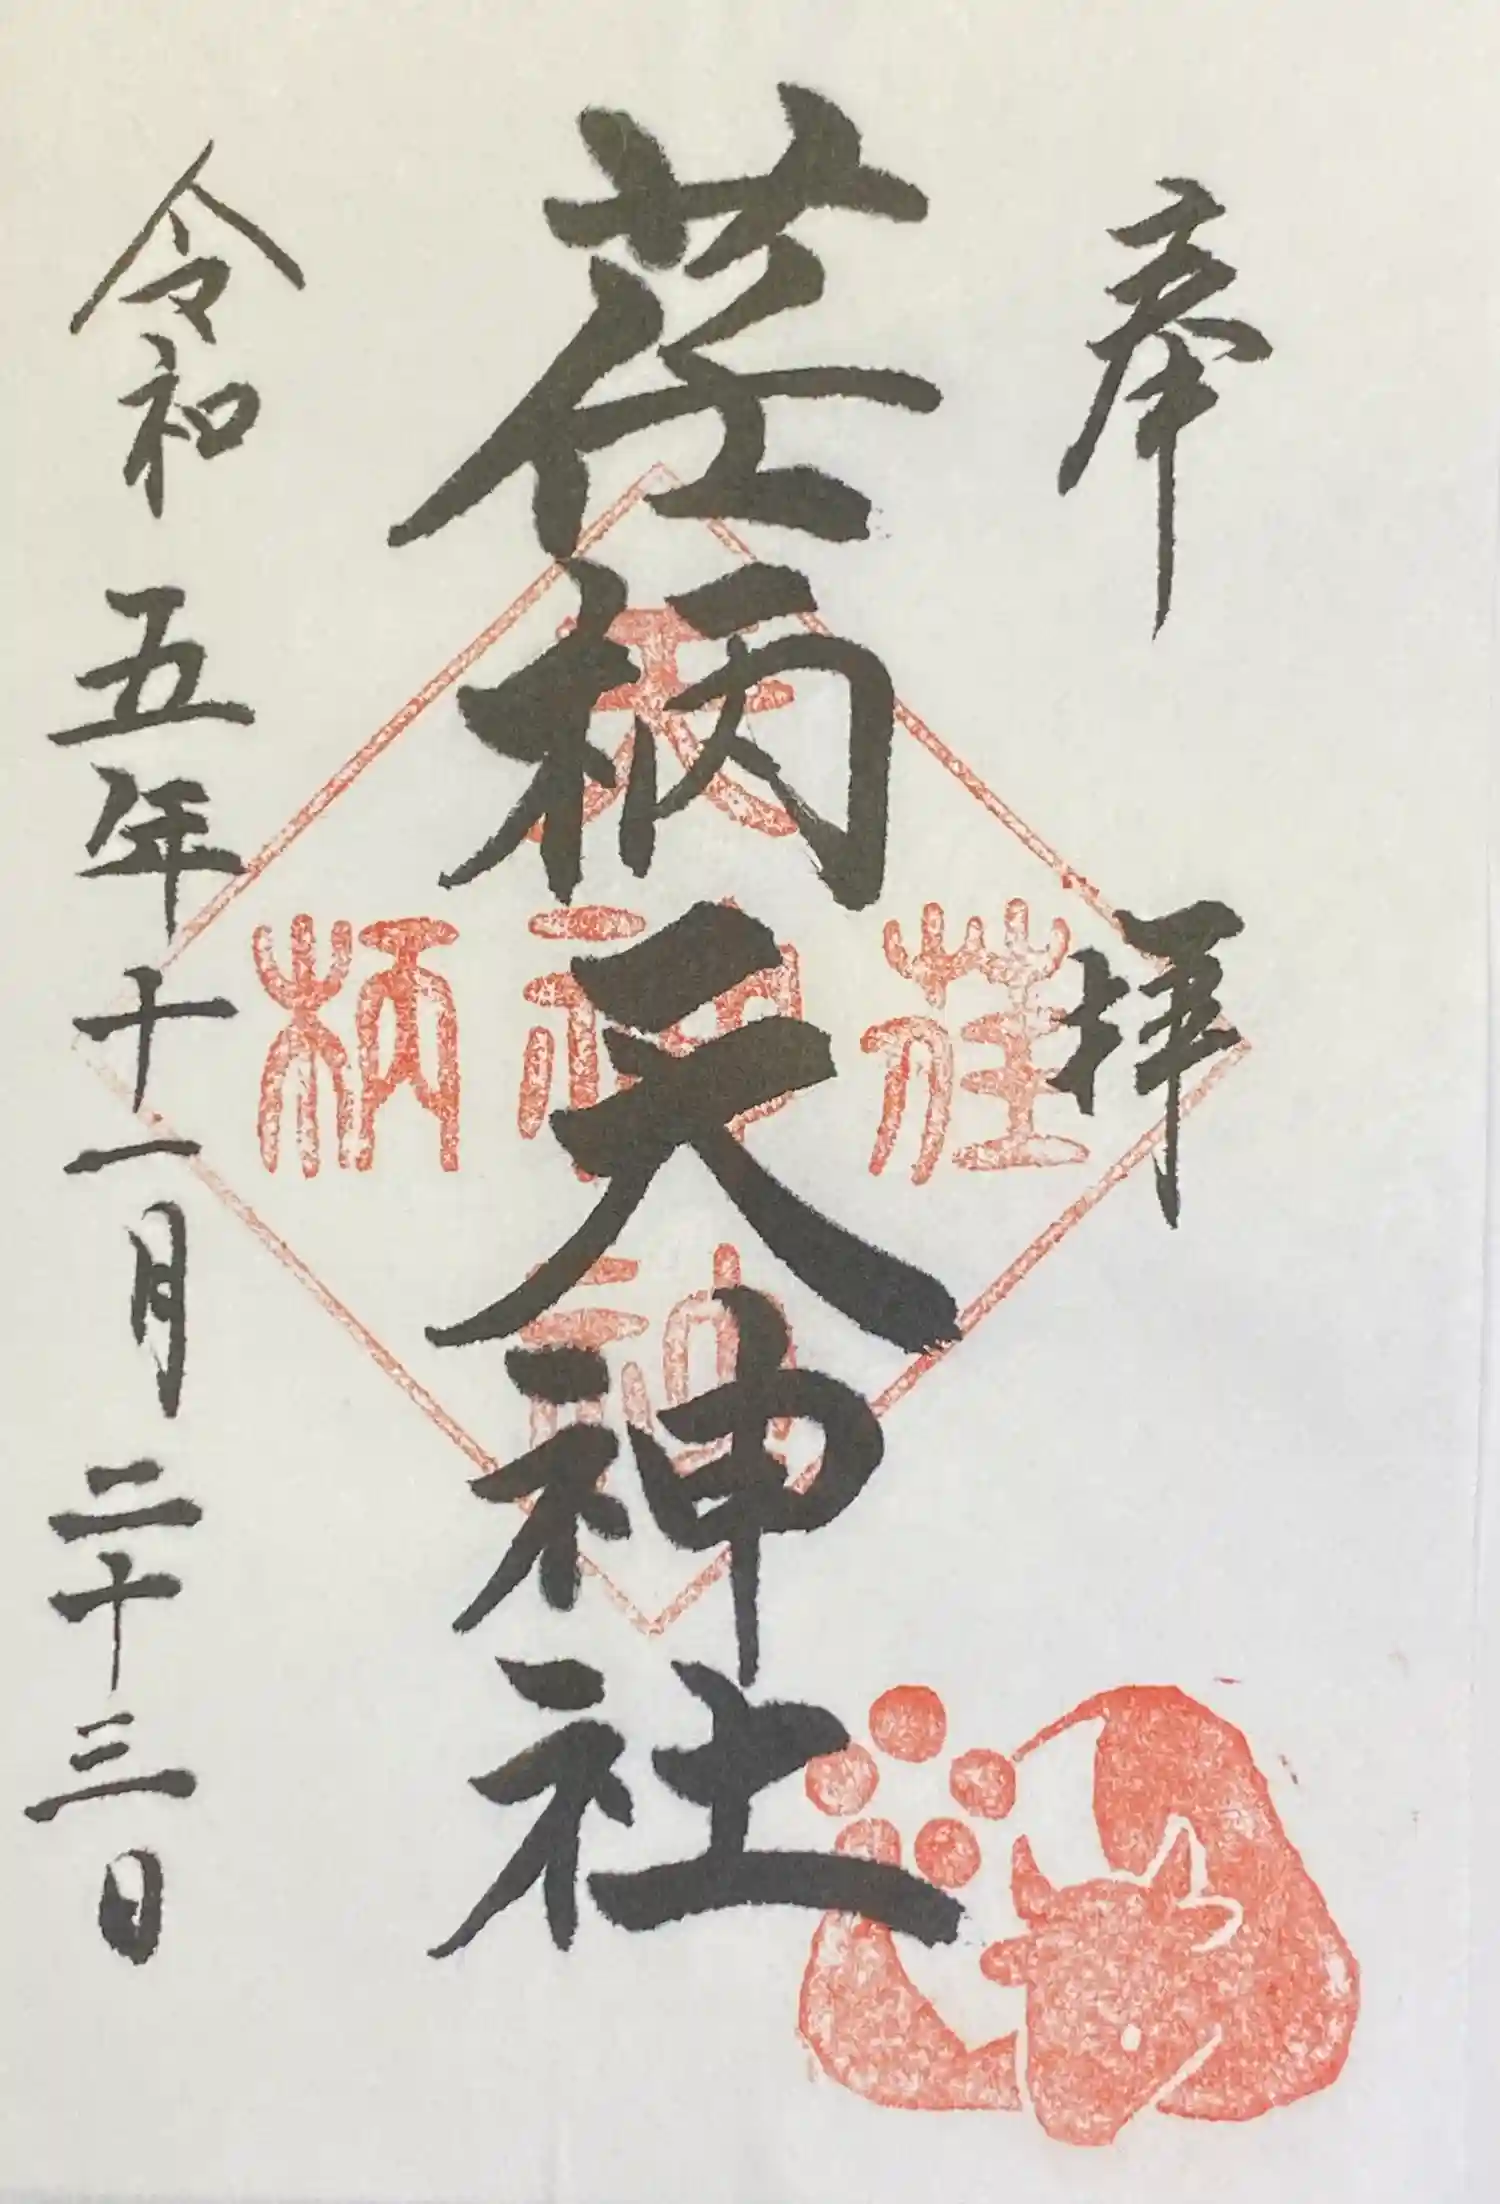 奉拝
荏柄天神社
令和五年十一月二十三日
天
荏神柄
神